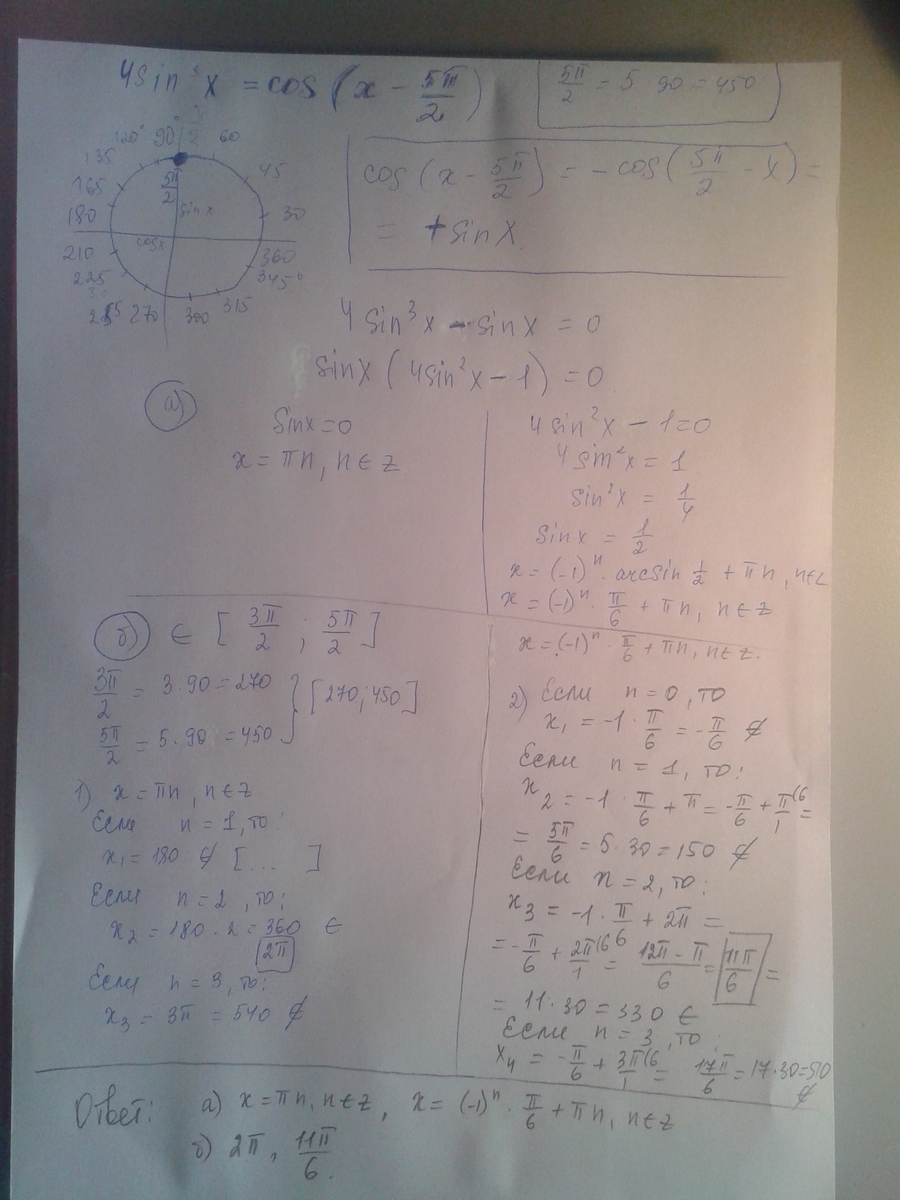 4sin³x = cos(x - 5π/2)
5π/2 = 5 90 = 450
120° 90° π/2 60
135 45
165 5π/2
180 sinx 30
cosx
210 360
225 345°
270 300 315
cos(x - 5π/2) = -cos(5π/2 - x) =
= + sinx
4sin³x - sinx = 0
sinx(4sin²x - 1) = 0
а)
sinx = 0
x = πn, n ∈ z
4sin²x - 1 = 0
4sin²x = 1
sin²x = 1/4
sinx = 1/2
x = (-1)ⁿ · arcsin 1/2 + πn, n∈z
x = (-1)ⁿ · π/6 + πn, n ∈ z
б) ∈ [3π/2 ; 5π/2]
3π/2 = 3·90 = 270
5π/2 = 5·90 = 450
} [270; 450]
1) x = πn, n ∈ z
Если n = 1, то:
x₁ = 180 ∉ [... ]
Если n = 2, то:
x₂ = 180 · 2 = 360 ∈
2π
Если n = 3, то:
x₃ = 3π = 540 ∉
x = (-1)ⁿ · π/6 + πn, n ∈ z.
2) Если n = 0, то
x₁ = -1 · π/6 = -π/6 ∉
Если n = 1, то:
x₂ = -1 · π/6 + π = -π/6 + π/1 (6 =
= 5π/6 = 5·30 = 150 ∉
Если n = 2, то:
x₃ = -1 · π/6 + 2π =
= -π/6 + 2π/1 (6 = 12π - π/6 = 11π/6 =
= 11·30 = 330 ∈
Если n = 3, то:
x₄ = -π/6 + 3π/1 (6 = 17π/6 = 17·30 = 510
∉
Ответ: а) x = πn, n ∈ z, x = (-1)ⁿ · π/6 + πn, n ∈ z
б) 2π, 11π/6.